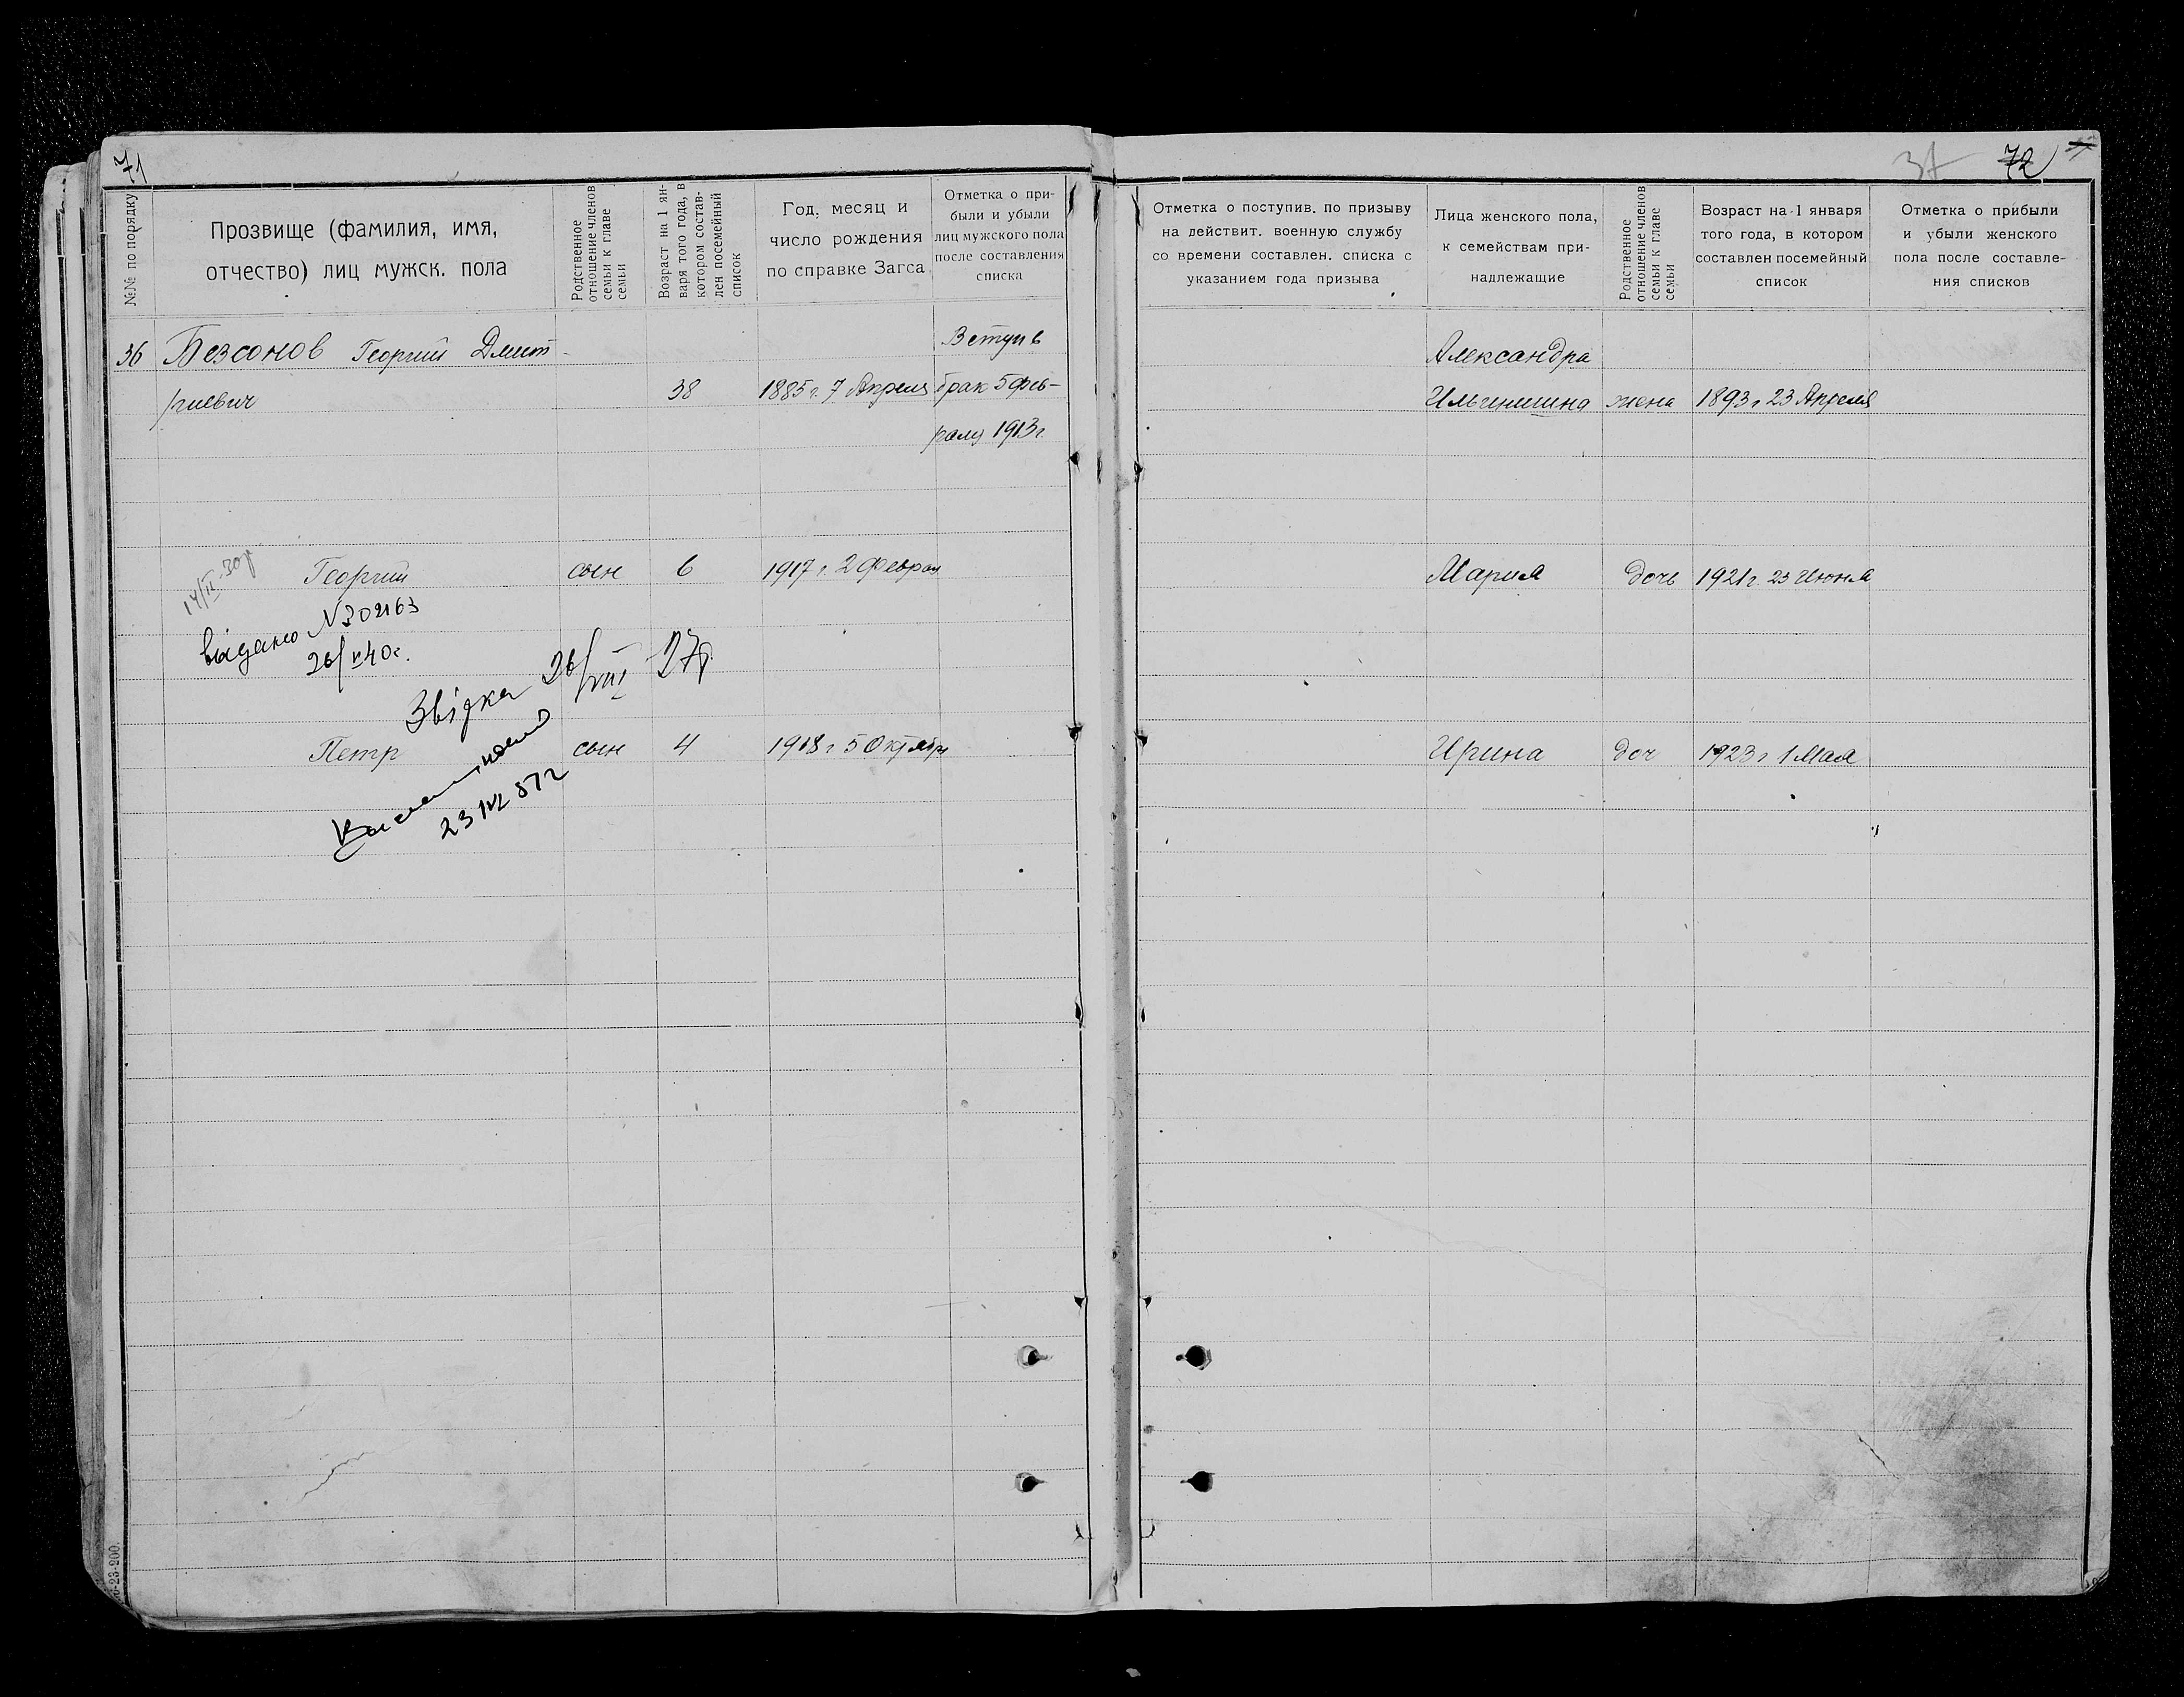 71
№№ по порядку
Прозвище (фамилия, имя,
отчество) лиц мужск. пола
Родственное
отношение членов
семьи к главе
семьи
Возраст на 1 ян-
варя того года, в
котором состав-
лен посемейный
список
Год, месяц и
число рождения
по справке Загса
Отметка о при-
были и убыли
лиц мужского пола
после составления
списка
36 Безсонов Георгий Дмит-
риевич 38 1885 г. 7 Апреля
Вступ в
брак 5 Фев-
раля 1913 г.
14/II-30р
Георгий сын 6 1917 г. 2 Феврал
видано N302163
26/V 40г.
Звідка 26/VIII 27р.
Петр сын 4 1918 г 5 Октября
23 57 г
6-23-200.
37 72
Отметка о поступив. по призыву
на действит. военную службу
со времени составлен. списка с
указанием года призыва
Лица женского пола,
к семействам при-
надлежащие
Родственное
отношение членов
семьи к главе
семьи
Возраст на 1 января
того года, в котором
составлен посемейный
список
Отметка о прибыли
и убыли женского
пола после составле-
ния списков
Александра
Ильинишна жена 1893 г 23 Апреля
Мария дочь 1921 г 23 Июня
Ирина доч 1923 г 1 Мая